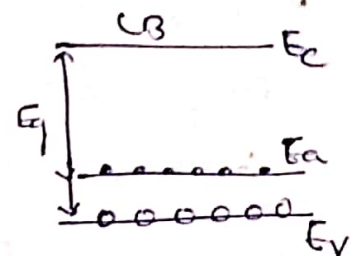 CB
Ec
Eg
Ea
Ev